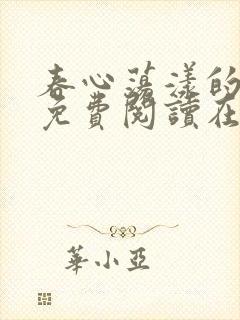 春心蕩漾的
免費閱讀在
華小亞